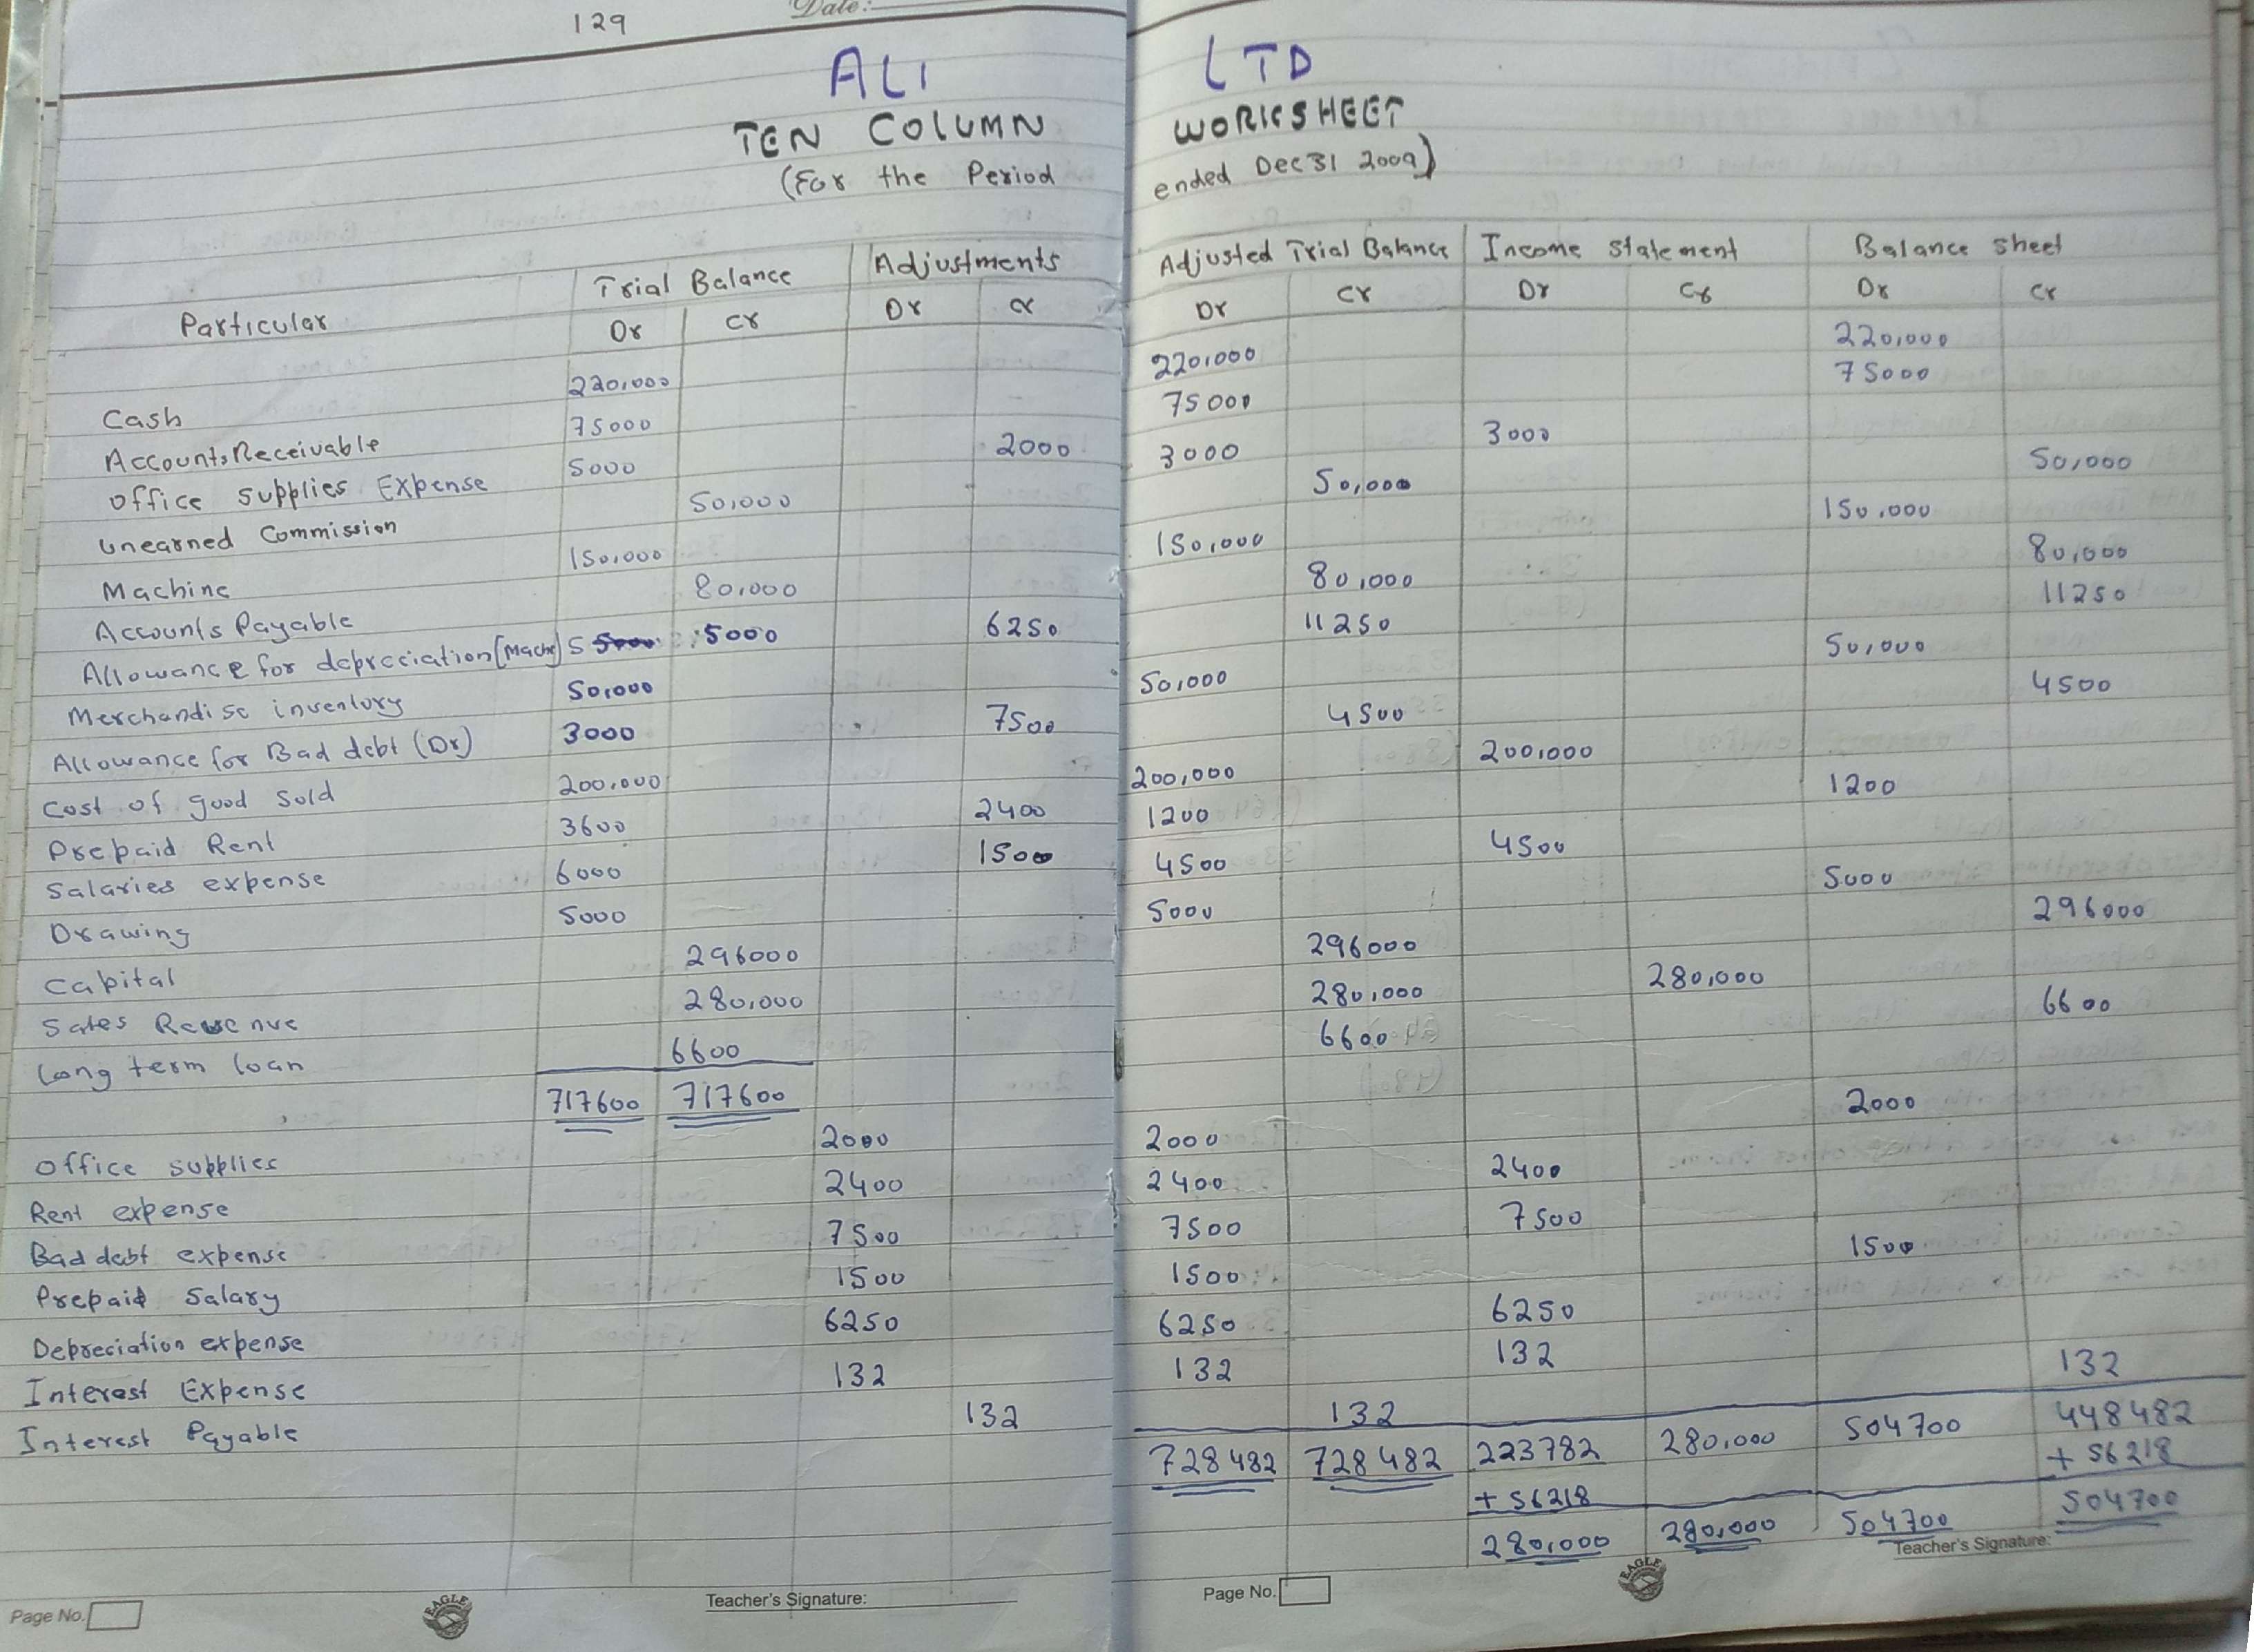 129 Date:
ALI LTD
TEN COLUMN WORKSHEET
(For the Period ended Dec 31 2009)
Particular Trial Balance Adjustments Adjusted Trial Balance Income statement Balance sheet
Dr Cr Dr Cr Dr Cr Dr Cr Dr Cr
Cash 220,000 220,000 220,000
Accounts Receivable 75000 75000 75000
Office Supplies Expense 5000 2000 3000 3000
Unearned Commission 50,000 50,000 50,000
Machine 150,000 150,000 150,000
Accounts Payable 80,000 80,000 80,000
Allowance for depreciation [Mach] 5000 6250 11250 11250
Merchandise inventory 50,000 50,000 50,000
Allowance for Bad debt (Dr) 3000 7500 4500 4500
Cost of good Sold 200,000 200,000 200,000
Prepaid Rent 3600 2400 1200 1200
Salaries expense 6000 1500 4500 4500
Drawing 5000 5000 5000
Capital 296000 296000 296000
Sales Revenue 280,000 280,000 280,000
Long term loan 6600 6600 6600
717600 717600
Office supplies 2000 2000 2000
Rent expense 2400 2400 2400
Bad debt expense 7500 7500 7500
Prepaid Salary 1500 1500 1500
Depreciation expense 6250 6250 6250
Interest Expense 132 132 132
Interest Payable 132 132 132
728482 728482 223782 280,000 504700 448482
+ 56218 + 56218
280,000 280,000 504700 504700
Page No. EAGLE Teacher's Signature: Page No. EAGLE Teacher's Signature: